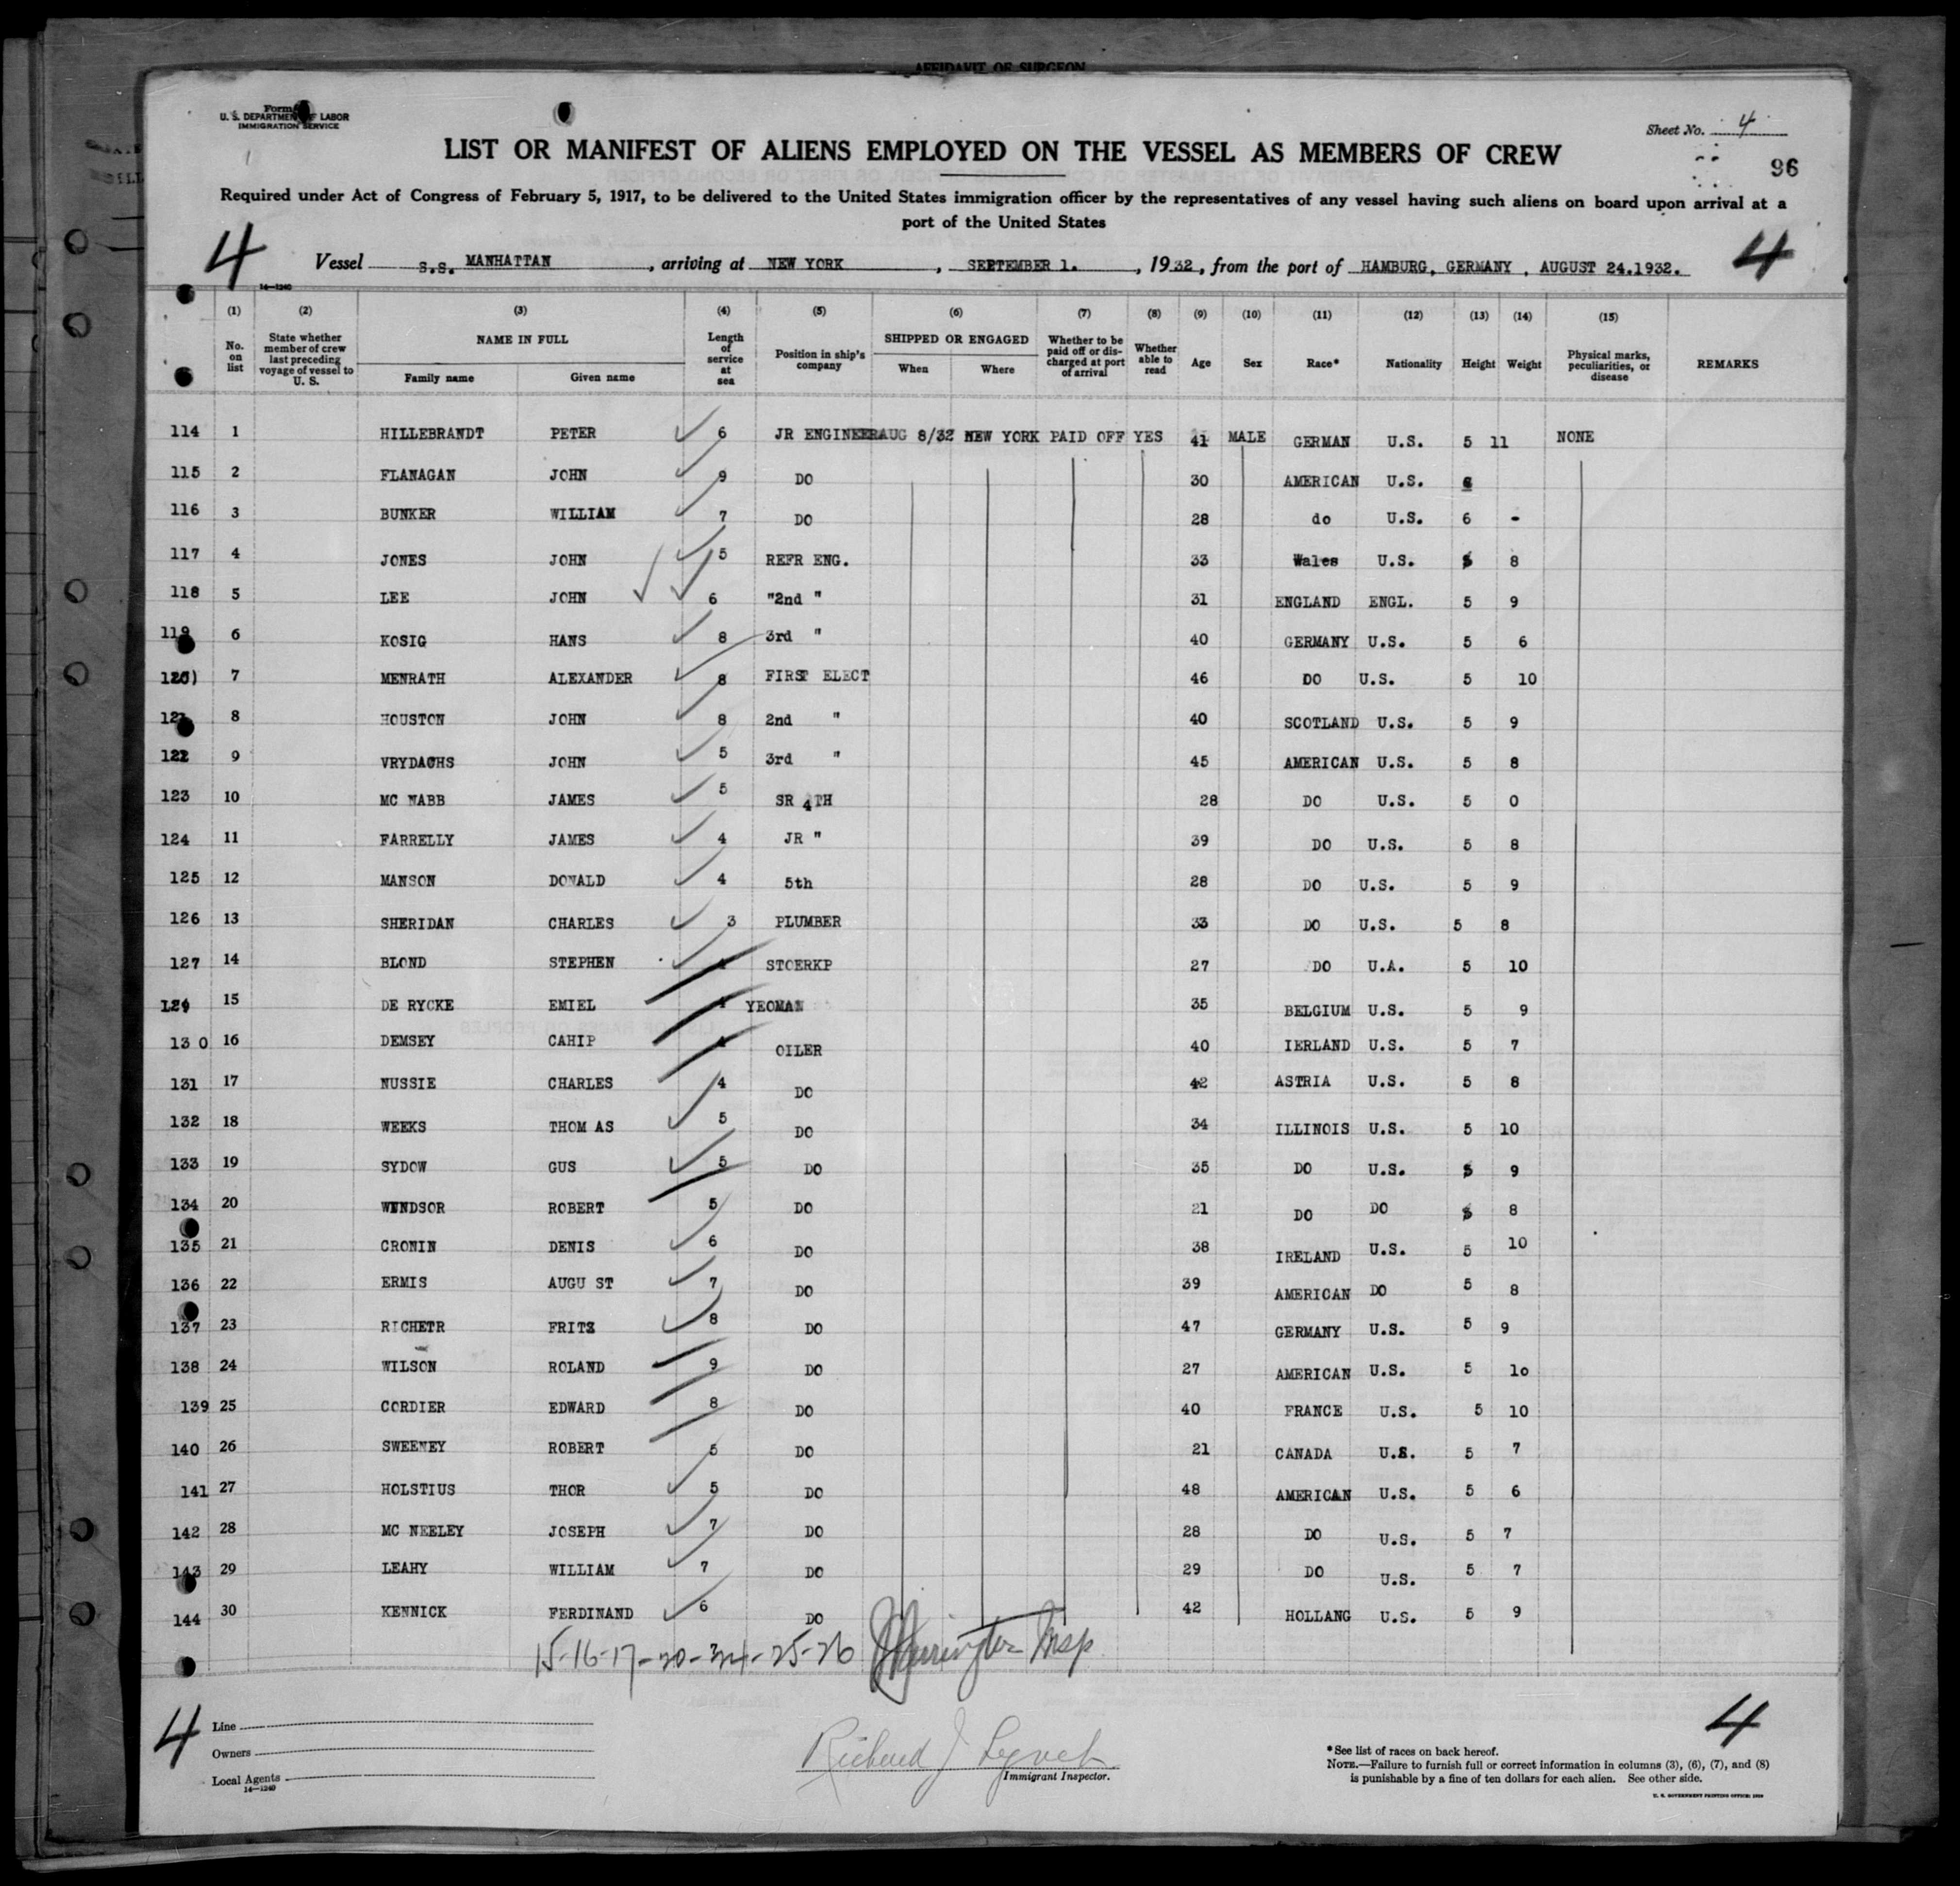 AFFIDAVIT OF SURGEON
Form
U. S. DEPARTMENT OF LABOR
IMMIGRATION SERVICE
Sheet No. 4
LIST OR MANIFEST OF ALIENS EMPLOYED ON THE VESSEL AS MEMBERS OF CREW
96
Required under Act of Congress of February 5, 1917, to be delivered to the United States immigration officer by the representatives of any vessel having such aliens on board upon arrival at a
port of the United States
4 4
Vessel S.S. MANHATTAN, arriving at NEW YORK, SEPTEMBER 1., 1932, from the port of HAMBURG, GERMANY, AUGUST 24.1932.
14—1240
(1) (2) (3) (4) (5) (6) (7) (8) (9) (10) (11) (12) (13) (14) (15)
No. on list State whether member of crew last preceding voyage of vessel to U. S. NAME IN FULL Family name Given name Length of service at sea Position in ship's company SHIPPED OR ENGAGED When Where Whether to be paid off or discharged at port of arrival Whether able to read Age Sex Race* Nationality Height Weight Physical marks, peculiarities, or disease REMARKS
114 1 HILLEBRANDT PETER 6 JR ENGINEER AUG 8/32 NEW YORK PAID OFF YES 41 MALE GERMAN U.S. 5 11 NONE
115 2 FLANAGAN JOHN 9 DO 30 AMERICAN U.S. 6
116 3 BUNKER WILLIAM 7 DO 28 do U.S. 6 -
117 4 JONES JOHN 5 REFR ENG. 33 Wales U.S. 5 8
118 5 LEE JOHN 6 "2nd " 31 ENGLAND ENGL. 5 9
119 6 KOSIG HANS 8 3rd " 40 GERMANY U.S. 5 6
120) 7 MENRATH ALEXANDER 8 FIRST ELECT 46 DO U.S. 5 10
121 8 HOUSTON JOHN 8 2nd " 40 SCOTLAND U.S. 5 9
122 9 VRYDAGHS JOHN 5 3rd " 45 AMERICAN U.S. 5 8
123 10 MC NABB JAMES 5 SR 4TH 28 DO U.S. 5 0
124 11 FARRELLY JAMES 4 JR " 39 DO U.S. 5 8
125 12 MANSON DONALD 4 5th 28 DO U.S. 5 9
126 13 SHERIDAN CHARLES 3 PLUMBER 33 DO U.S. 5 8
127 14 BLOND STEPHEN 4 STOERKP 27 DO U.A. 5 10
129 15 DE RYCKE EMIEL 4 YEOMAN 35 BELGIUM U.S. 5 9
13 0 16 DEMSEY CAHIP 4 OILER 40 IERLAND U.S. 5 7
131 17 NUSSIE CHARLES 4 DO 42 ASTRIA U.S. 5 8
132 18 WEEKS THOM AS 5 DO 34 ILLINOIS U.S. 5 10
133 19 SYDOW GUS 5 DO 35 DO U.S. 5 9
134 20 WINDSOR ROBERT 5 DO 21 DO DO 5 8
135 21 CRONIN DENIS 6 DO 38 IRELAND U.S. 5 10
136 22 ERMIS AUGU ST 7 DO 39 AMERICAN DO 5 8
137 23 RICHETR FRITZ 8 DO 47 GERMANY U.S. 5 9
138 24 WILSON ROLAND 9 DO 27 AMERICAN U.S. 5 10
139 25 CORDIER EDWARD 8 DO 40 FRANCE U.S. 5 10
140 26 SWEENEY ROBERT 5 DO 21 CANADA U.S. 5 7
141 27 HOLSTIUS THOR 5 DO 48 AMERICAN U.S. 5 6
142 28 MC NEELEY JOSEPH 7 DO 28 DO U.S. 5 7
143 29 LEAHY WILLIAM 7 DO 29 DO U.S. 5 7
144 30 KENNICK FERDINAND 6 DO 42 HOLLANG U.S. 5 9
15-16-17-20-24-25-26 Insp
4 4
Line
Owners
Local Agents
14—1240
Richard J Lynch
Immigrant Inspector.
* See list of races on back hereof.
NOTE.—Failure to furnish full or correct information in columns (3), (6), (7), and (8)
is punishable by a fine of ten dollars for each alien. See other side.